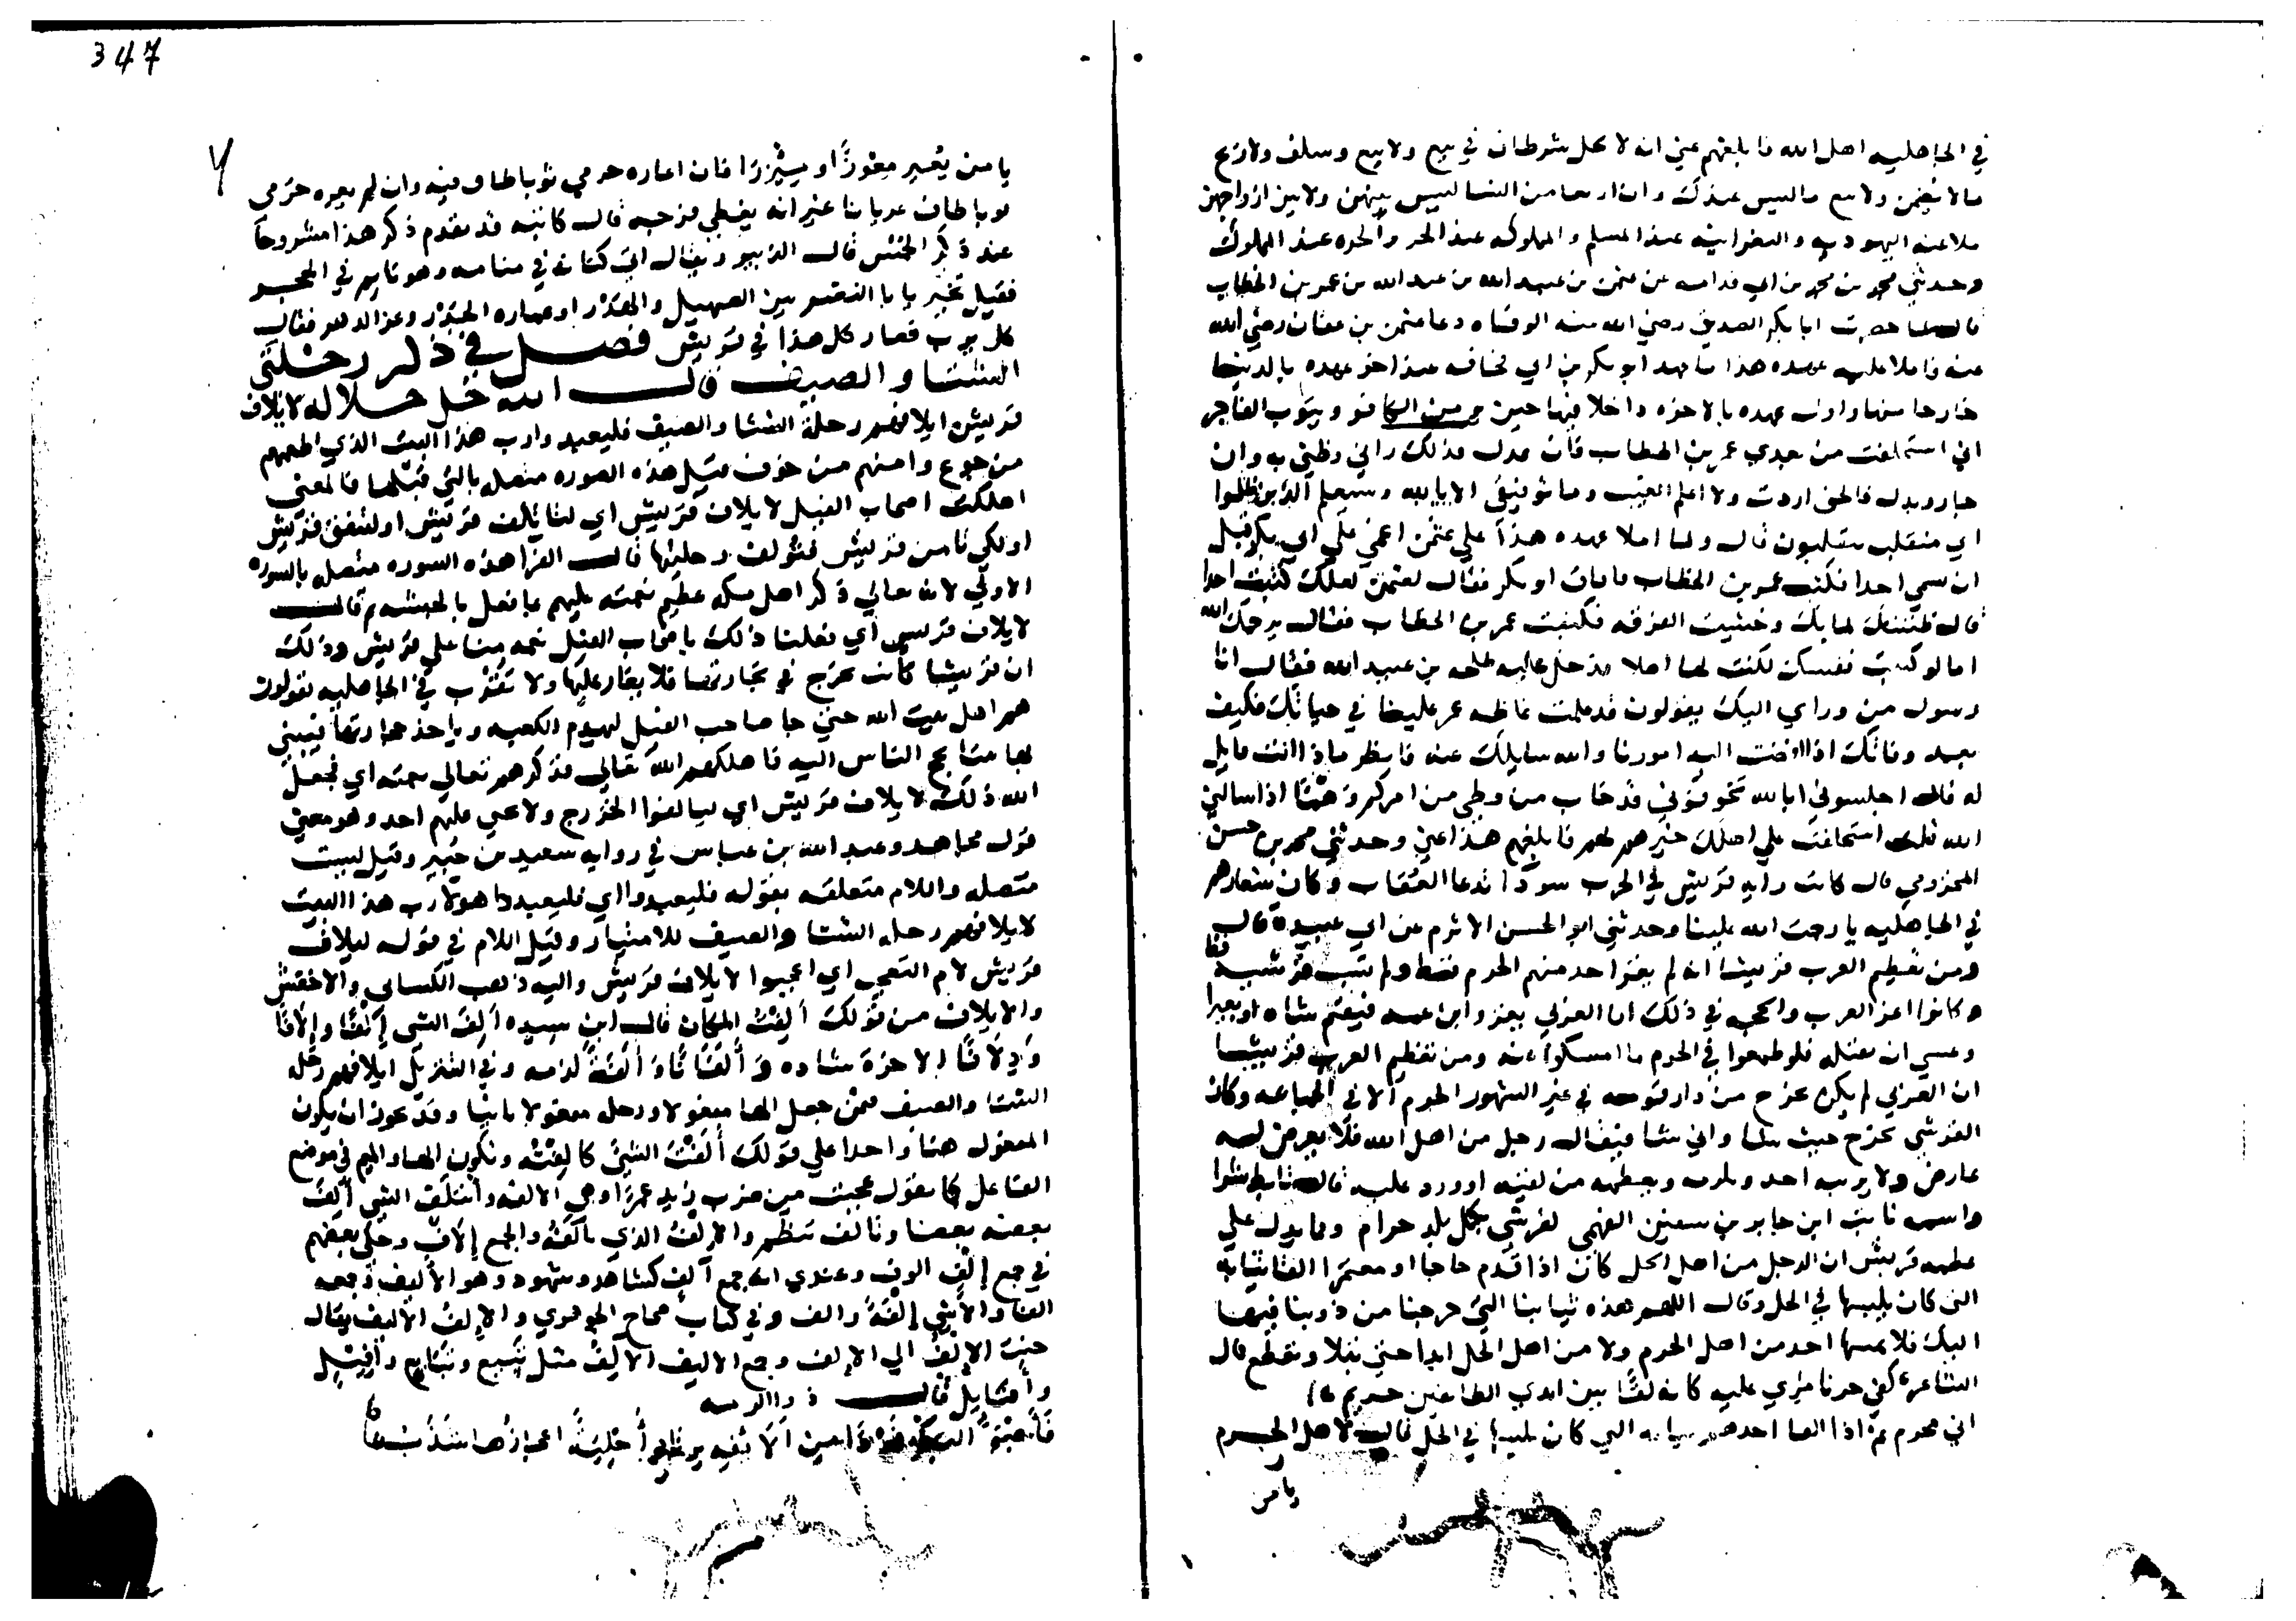 في الجاهليه اهل الله فابلغهم عني انه لا يحل شرطان في بيع ولا بيع وسلف ولا ربح
ما لا يضمن ولا بيع ما ليس عندك وان اربعا من النسا ليس بينهن ولا بين ازواجهن
ملاعنه اليهوديه والنصرانيه عند المسلم والمملوكه عند الحر والحره عند المملوك
وحدثني محمد بن محمد بن ابي قدامه عن عثمن بن عبيد الله بن عبد الله بن عمر بن الخطاب
قال لما حضرت ابا بكر الصديق رضي الله عنه الوفاه دعا عثمن بن عفان رضي الله
عنه فاملا عليه عهده هذا ما عهد ابو بكر بن ابي قحافه عند اخر عهده بالدنيا
خارجا منها واول عهده بالاخره داخلا فيها حين يومن الكافر ويتوب الفاجر
اني استخلفت من بعدي عمر بن الخطاب فان عدل فذلك رايي وظني به وان
جار وبدل فالحق اردت ولا اعلم الغيب وما توفيقي الا بالله وسيعلم الذين ظلموا
اي منقلب ينقلبون قال ولما املا عهده هذا علي عثمن اغمي علي ابي بكر قبل
ان يسمي احدا فكتب عمر بن الخطاب فافاق ابو بكر فقال لعثمن لعلك كتبت احدا
قال ظننتك لمابك وخشيت الفرقه فكتبت عمر بن الخطاب فقال يرحمك الله
اما لو كتبت نفسك لكنت لها اهلا فدخل عليه طلحه بن عبيد الله فقال انا
رسول من وراي اليك يقولون قد علمت غلظه عمر علينا في حياتك فكيف
بعد وفاتك اذا افضت اليه امورنا والله سايلك عنه فانظر ماذا انت قايل
له قال اجلسوني ابالله تخوفوني قد خاب من وطي من امركم وهما اذا سالني
الله قلت استخلفت علي اهلك خيرهم لهم فابلغهم هذا عني وحدثني محمد بن حسن
المخزومي قال كانت رايه قريش في الحرب سودا تدعا العقاب وكان شعارهم
في الجاهليه يا رحمت الله علينا وحدثني ابو الحسن الاثرم عن ابي عبيده قال
ومن تعظيم العرب قريشا انه لم يغز احد منهم الحرم قط ولم تسب قرشيه قط
وكانوا اعز العرب
وعسي ان يقتله فلو طمعوا في الحرم ما امسكوا عنه ومن تعظيم العرب قريشا
ان العربي لم يكن يخرج من دار قومه في غير الشهور الحرم الا في الجماعه وكان
القرشي يخرج حيث شا واني شا فيقال رجل من اهل الله فلا يعرض له
عارض ولا يريبه احد
واسمه ثابت ابن جابر بن سفين الفهمي لقرشي بكل بلد حرام ومما يدل علي
عظمه قريش ان الرجل من اهل الحل كان اذا قدم حاجا او معتمرا القا ثيابه
التي كان يلبسها في الحل وقال اللهم هذه ثيابنا التي خرجنا من ذنوبنا فيها
اليك فلا يمسها احد من اهل الحرم ولا من اهل الحل ابدا حتي تبلا وتقطع قال
الشاعر كفي حزنا مري عليه كانه لقا بين ايدي الطائفين حريم
اي محرم ثم اذا القا احدهم ثيابه التي كان يلبسها في الحل قال لاهل الحرم
يا من
347
يا من يعير معوزا او ميزرا فان اعاره حرمي ثوبا طاف فيه وان لم يعره حرمي
ثوبا طاف عريانا غير انه يغطي فرجه قال كاتبه قد تقدم ذكر هذا مشروحا
عند ذكر الحمس قال الزبير ويقال اتي كنانه في منامه وهو نايم في الحجر
فقيل تخير يا با النضر بين الصهيل والهدر او عماره الجدر وعز الدهر فقال
كل يا رب فصار كل هذا في قريش فصل في ذكر رحلتي
الشتا والصيف قال الله جل جلاله لايلاف
قريش ايلافهم رحلة الشتا والصيف فليعبدوا رب هذا البيت الذي اطعمهم
من جوع وامنهم من خوف قيل هذه السوره متصله بالتي قبلها فالمعني
اهلكت اصحاب الفيل لايلاف قريش اي لتاتلف قريش او لتتفق قريش
او لكي نامن قريش فتولف رحلتيها قال الفرا هذه السوره متصله بالسوره
الاولي لانه تعالي ذكر اهل مكه عظيم نعمته عليهم بما فعل بالحبشه ثم قال
لايلاف قريش اي فعلنا ذلك باصحاب الفيل نعمه منا علي قريش وذلك
ان قريشا كانت تخرج في تجارتها فلا يغار عليها ولا تقرب في الجاهليه يقولون
هم اهل بيت الله حتي جا صاحب الفيل ليهدم الكعبه وياخذ حجارتها فيبني
بها بيتا يحج الناس اليه فاهلكهم الله تعالي فذكرهم تعالي نعمته اي فجعل
الله ذلك لايلاف قريش اي ليالفوا الخروج ولا يجتري عليهم احد وهو معني
قول مجاهد وعبد الله بن عباس في روايه سعيد بن جبير وقيل ليست
متصله واللام متعلقه بقوله فليعبدوا اي فليعبدوا هولا رب هذا البيت
لايلافهم رحله الشتا والصيف للامتيار وقيل اللام في قوله لايلاف
قريش لام التعجب اي اعجبوا لايلاف قريش واليه ذهب الكسائي والاخفش
والايلاف من قولك الفت المكان قال ابن سيده الف الشي الفا والافا
وولافا الاخيره شاده والفانا والفه لزمه وفي التنزيل ايلافهم رحله
الشتا والصيف فمن جعل الها مفعولا ورحله مفعولا ثانيا وقد يجوز ان يكون
المفعول هنا واحدا علي قولك الفت الشي كالفته وتكون الها والميم في موضع
الفاعل كما تقول عجبت من ضرب زيد عمرا وهي الالفه وائتلف الشي الف
بعضه بعضا وتالف تنظم والالف الذي تالفه والجمع الاف وحكي بعضهم
في جمع الف الوف وعندي انه جمع الف كشاهد وشهود وهو الاليف وجمعه
الفا والانثي الفة والف وفي كتاب صحاح الجوهري والالف الاليف يقال
حنت الالف الي الالف وجمع الاليف الالف مثل تبيع وتبايع وافيل
وافايل قال ذو الرمه